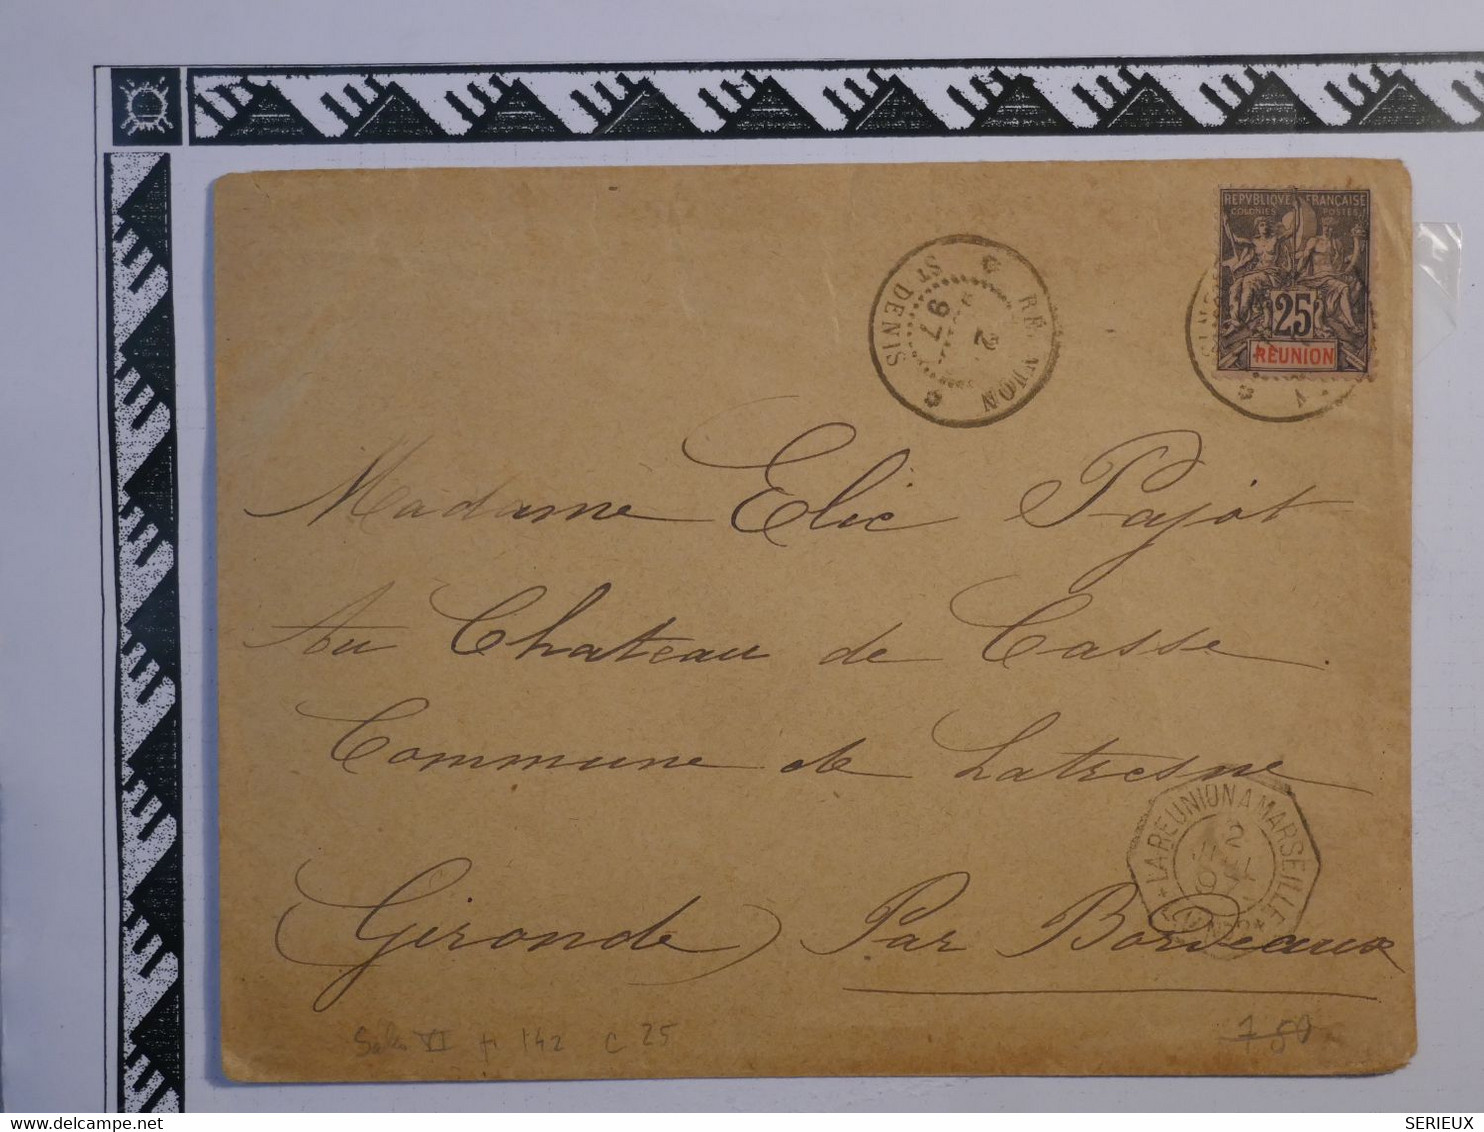 REPVBLIQVE FRANÇAISE
COLONIES POSTES
25
RÉUNION
RÉUNION
2
97
ST DENIS
Madame Elie Pajot
Au Chateau de Casse
Commune de Latresne
LA REUNION A MARSEILLE
2
(Gironde) Par Bordeaux
142 c 25
7 50
SERIEUX